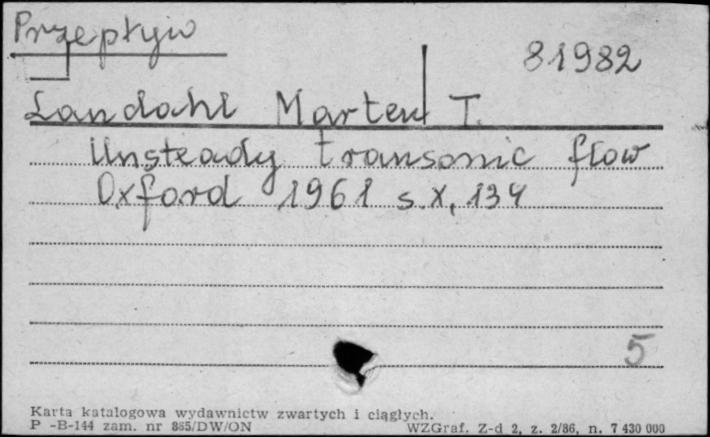 Przepływ
81982
Landahl Marten T.
Unsteady transonic flow
Oxford 1961 s. X, 134
5
Karta katalogowa wydawnictw zwartych i ciągłych.
P -B-144 zam. nr 865/DW/ON WZGraf. Z-d 2, z. 2/86, n. 7 430 000